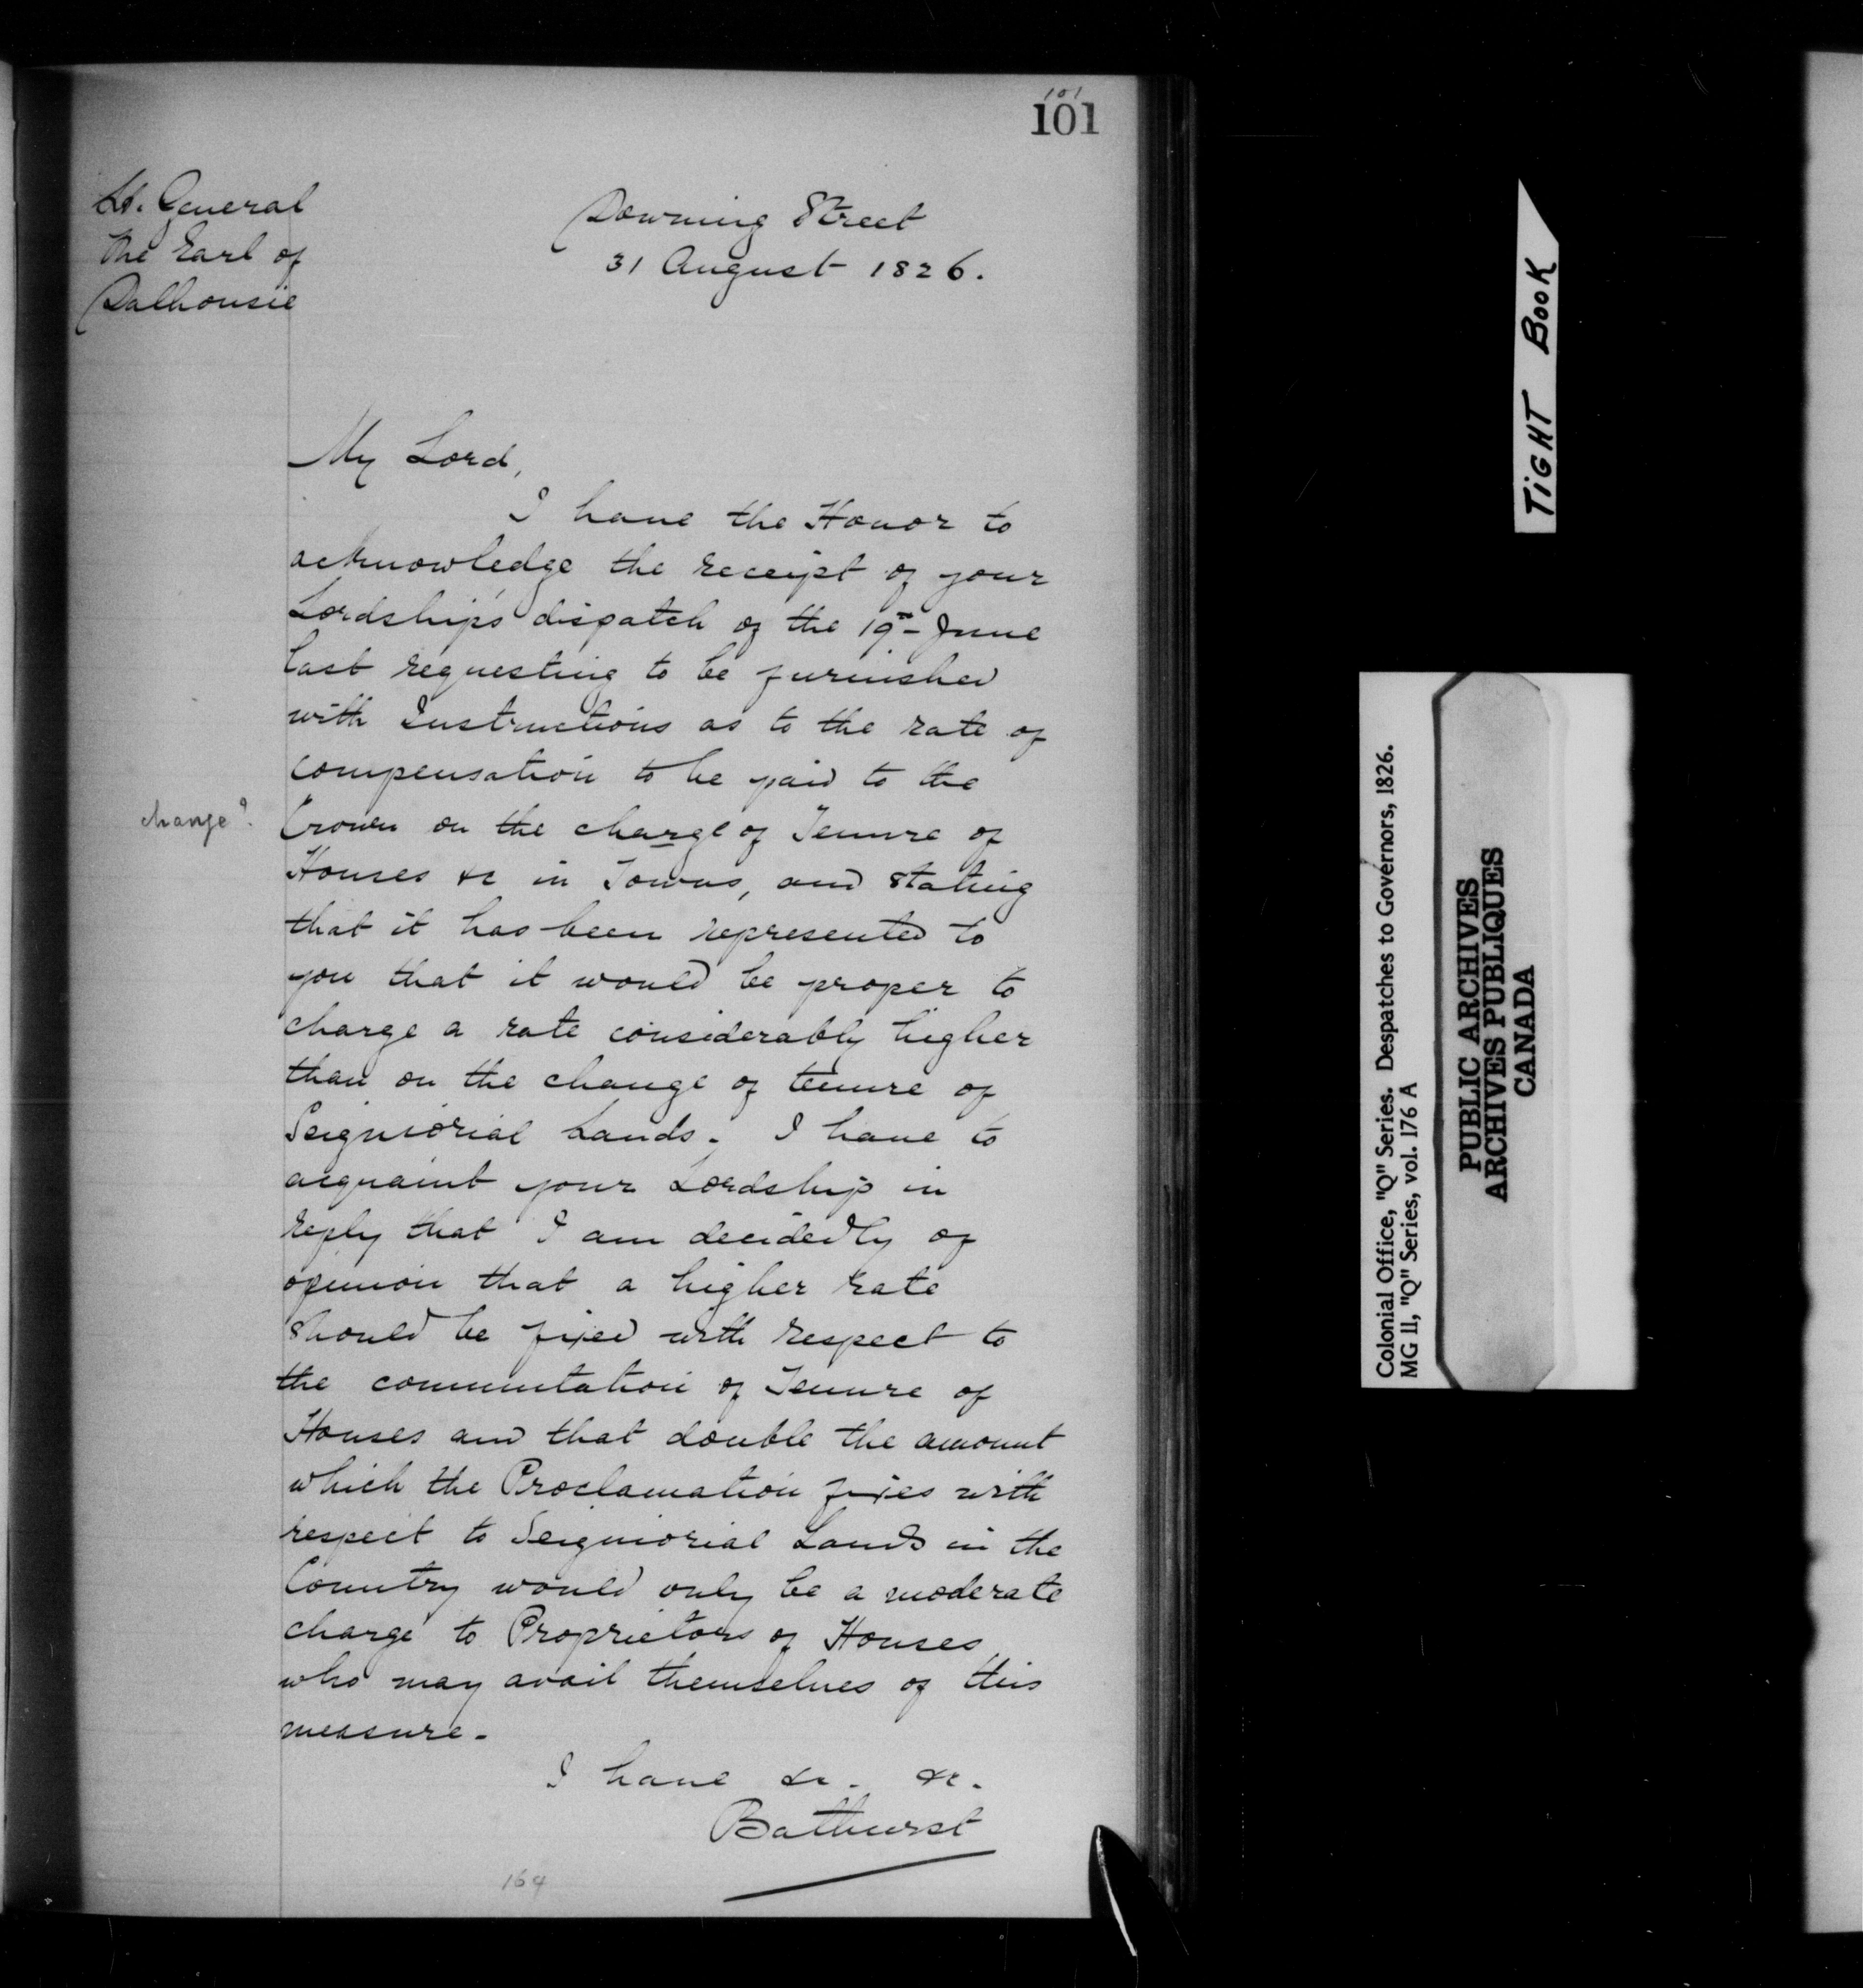 101
101
Lt. General
the Earl of
Dalhousie
Downing Street
31 August 1826.
My Lord,
I have the Honor to
acknowledge the receipt of your
Lordship's dispatch of the 19th June
last requesting to be furnished
with Instructions as to the rate of
compensation to be paid to the
change?
Crown on the charge of Tenure of
Houses &c in Towns, and stating
that it has been represented to
you that it would be proper to
charge a rate considerably higher
than on the change of tenure of
Seigniorial Lands. I have to
acquaint your Lordship in
reply that I am decidedly of
opinion that a higher rate
should be fixed with respect to
the commutation of Tenure of
Houses and that double the amount
which the Proclamation fixes with
respect to Seigniorial Lands in the
Country would only be a moderate
charge to Proprietors of Houses
who may avail themselves of this
measure.
I have &c. &c.
Bathurst
164
TIGHT BOOK
Colonial Office, "Q" Series. Despatches to Governors, 1826.
MG 11, "Q" Series, vol. 176 A
PUBLIC ARCHIVES
ARCHIVES PUBLIQUES
CANADA